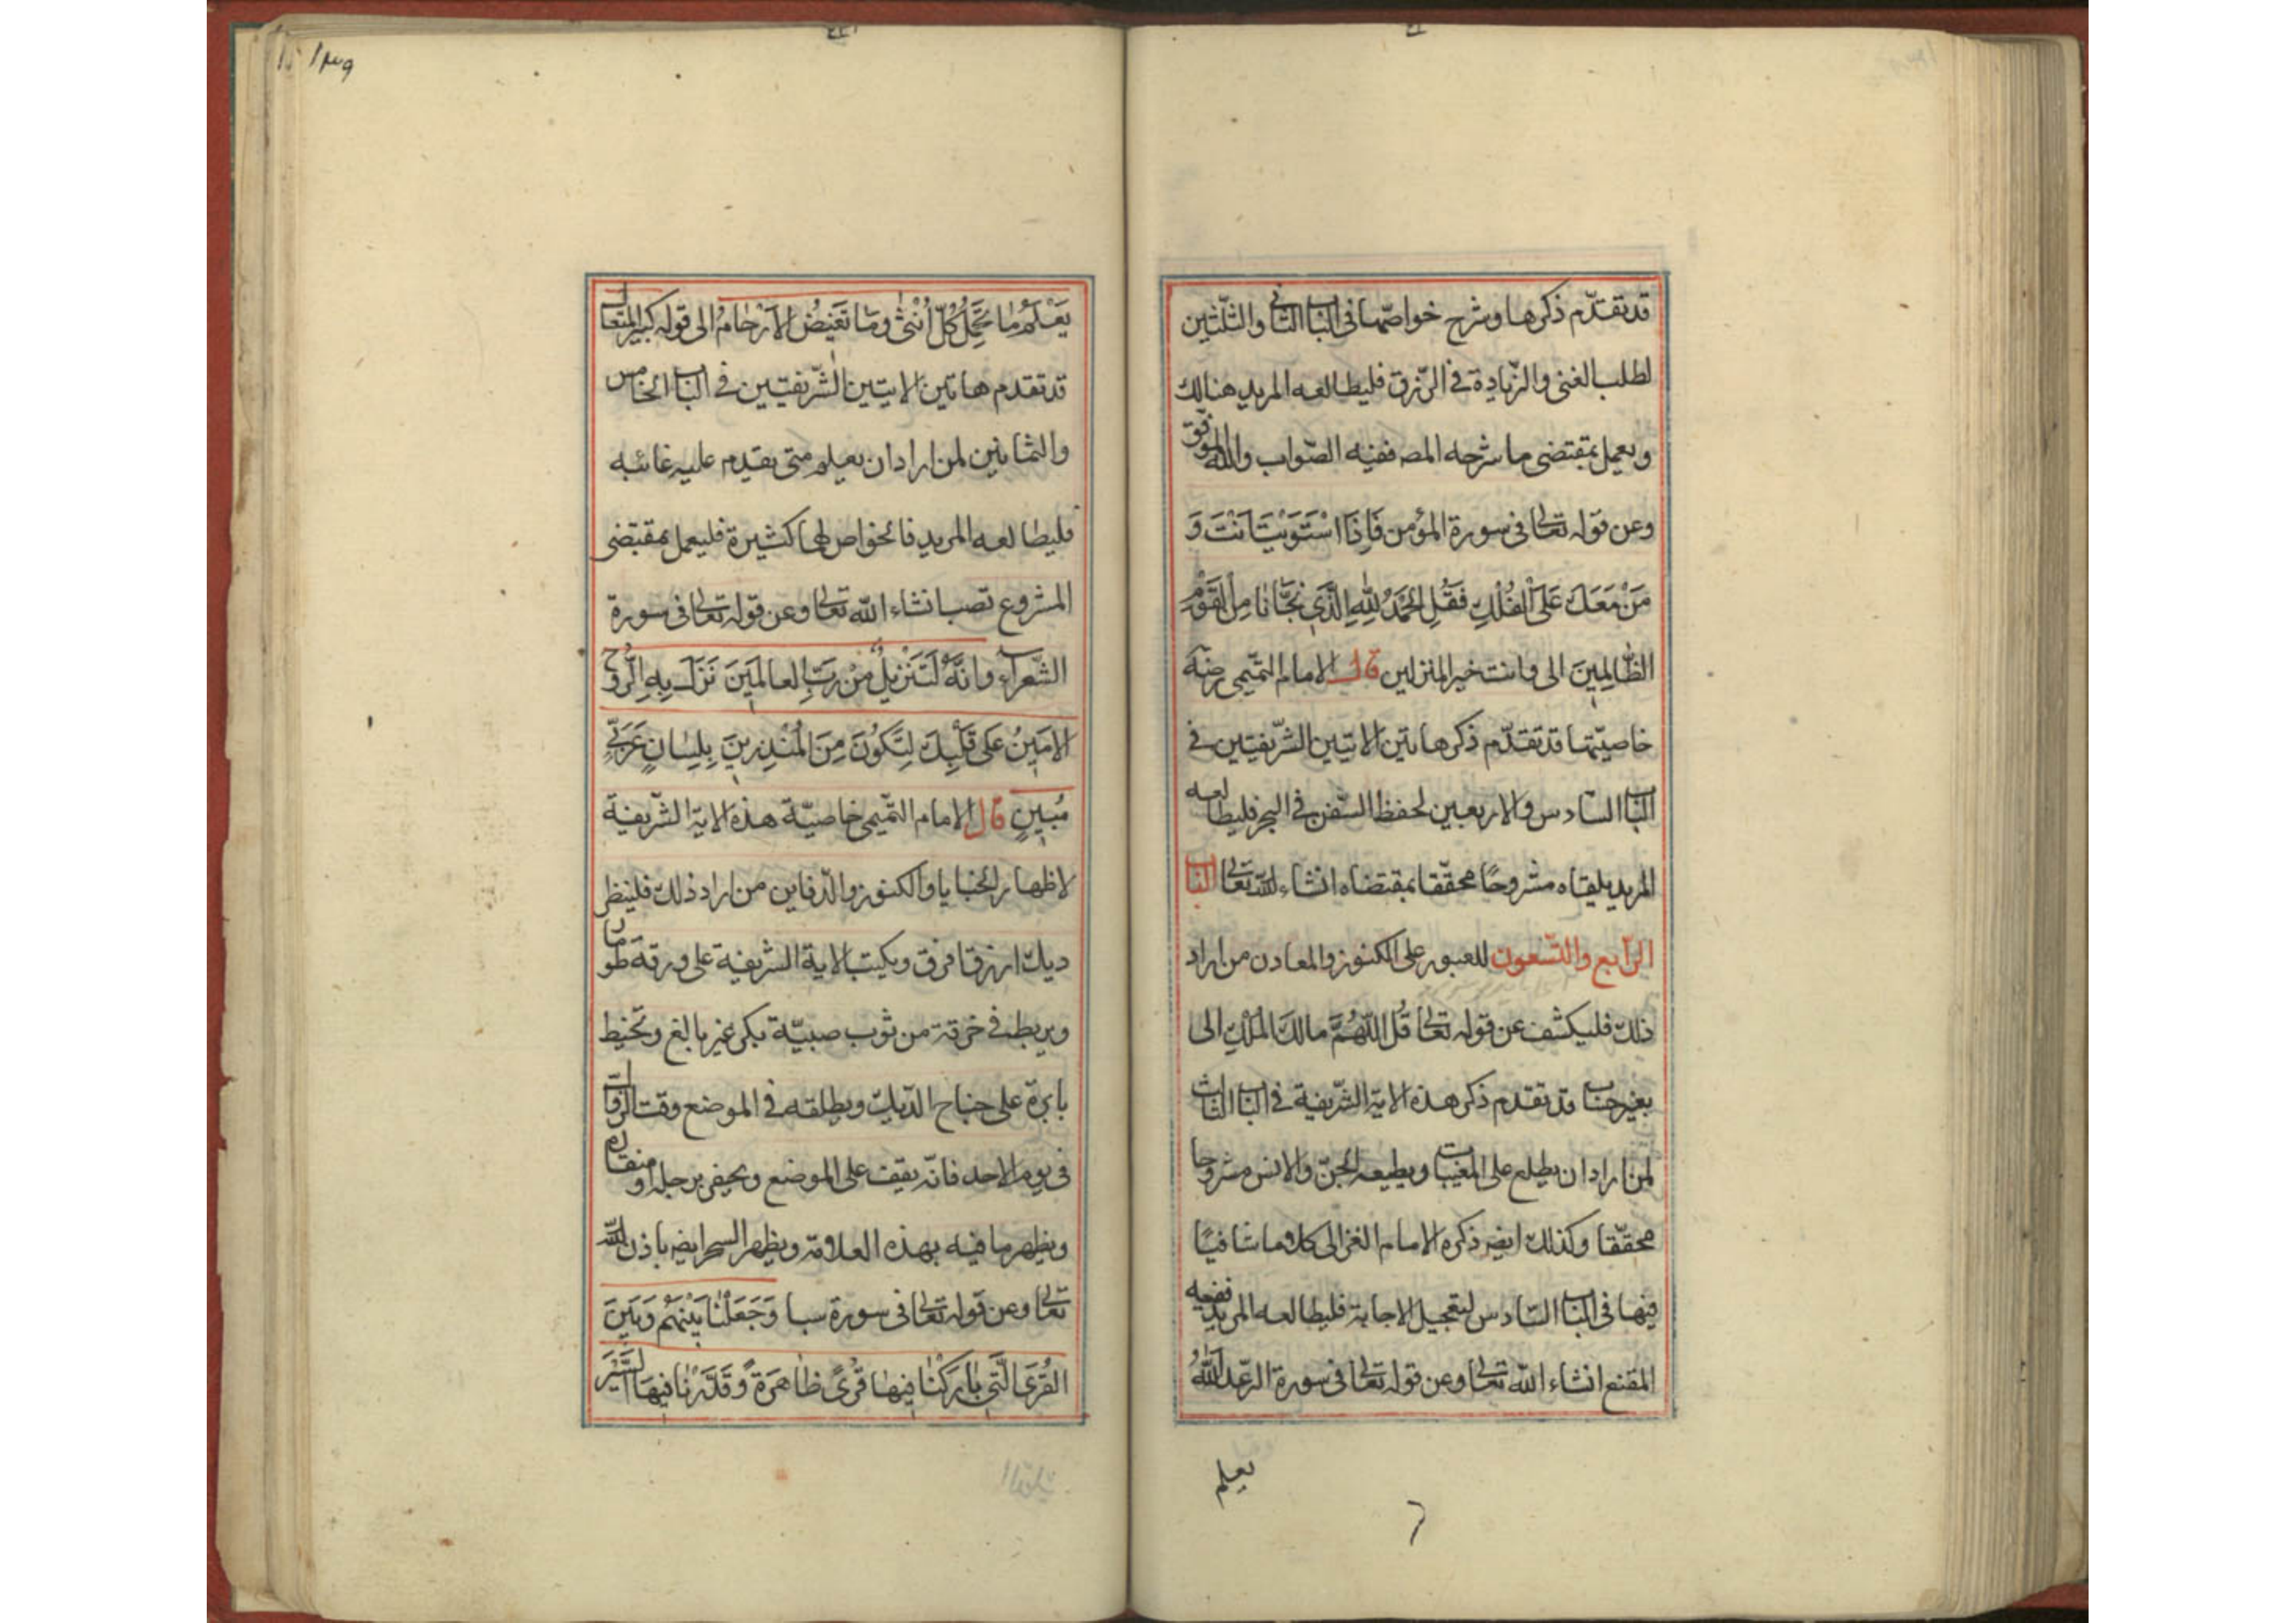 قد تقدّم ذكرها وشرح خواصّها فى الباب الثانى والثلثين
لطلب الغنى والزّيادة فى الرّزق فليطالعه المريد هنالك
ويعمل بمقتضى ما شرحه المصـ ففيه الصّواب والله الموفق
وعن قوله تعالى فى سورة المؤمن فَاِذَا اسْتَوَيْتَ اَنْتَ وَ
مَنْ مَعَكَ عَلَى الْفُلْكِ فَقُلِ الْحَمْدُ لِلّٰهِ الَّذِي نَجَّانَا مِنَ الْقَوْمِ
الظَّالِمِينَ الى وانت خير المنزلين قال الامام التميمى رضه
خاصيّتها قد تقدّم ذكر هاتين الايتين الشّريفتين فى
الباب السّادس والاربعين لحفظ السّفن فى البحر فليطالعه
المريد يلقاه مشروحًا محقّقا بمقتضاه انشاء الله تعالى الباب
الرّابع والتّسعون للعبور على الكنوز والمعادن من اراد
ذلك فليكشف عن قوله تعالى قُل اللّهُمَّ مالكَ المُلْكِ الى
بغير حساب قد تقدم ذكر هذه الاية الشّريفة فى الباب الثالث
لمن اراد ان يطلع على المغيبات ويطيعه الجنّ والانس مشروحا
محقّقا وكذلك ايضـ ذكره الامام الغزالى كلاما شافيًا
فيها فى الباب السّادس لتعجيل الاجابة فليطالعه المريد ففيه
المقنع انشاء الله تعالى وعن قوله تعالى فى سورة الرّعد اَللّٰهُ
يعلم
١٣٩
يَعْلَمُ مَا تَحْمِلُ كُلّ اُنْثىٰ وَمَا تَغِيضُ الاَرْحَامُ الى قوله كبير المتعال
قد تقدم هاتين الايتين الشّريفتين فى الباب الخامس
والثمانين لمن اراد ان يعلم متى يقدم عليه غائبه
فليطالعه المريد فالخواص لها كثيرة فليعمل بمقتضى
المشروع تصب انشاء الله تعالى وعن قوله تعالى فى سورة
الشّعراء وَانَّهُ لَتَنْزِيلُ مِنْ رَبِّ العالَمِينَ نَزَلَ بِهِ الرُّوحُ
الامَينُ عَلى قَلْبِكَ لِتَكُونَ مِنَ المُنْذِرِينَ بِلِسٰانٍ عَرَبِيٍّ
مُبِينٍ قال الامام التّميمى خاصيّة هذه الاية الشّريفة
لاظهار الخبايا والكنوز والدّفاين من اراد ذلك فلينظر
ديك ازرقا فرق ويكتب الاية الشريفة على ورقة طومار
ويربط فى خرقة من ثوب صبيّة بكر غير بالغ وتخيط
بابرة على جناح الدّيك ويطلقه فى الموضع وقت الزوال
فى يوم الاحد فانّه يقف على الموضع ويحفر برجله او منقاره
ويظهر ما فيه بهذه العلامة ويظهر السحر ايضـ باذن الله
تعالى وعن قوله تعالى فى سورة سبا وَجَعَلْنٰا بَيْنَهُمْ وَبَيْنَ
القُرَى الَّتِي بٰارَكْنٰا فِيهٰا قُرىً ظٰاهِرَةً وَقَدَّرْنٰا فِيهَا السَّيْرَ